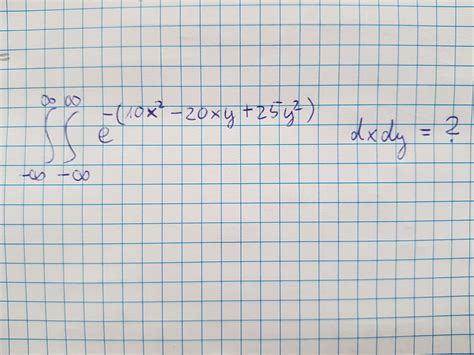 ∞ ∞
∫ ∫ e^-(10x² - 20xy + 25y²) dxdy = ?
-∞ -∞